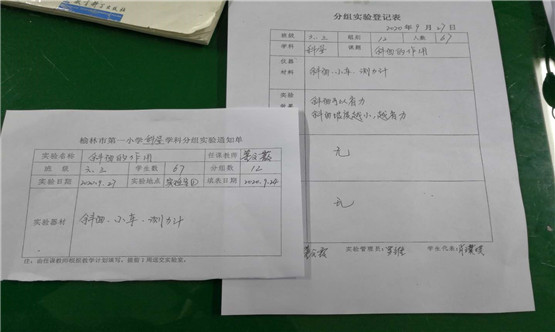 分组实验登记表
2020年9月27日
班级 六.2 组别 12 人数 67
学科 科学 课题 斜面的作用
仪器
材料 斜面、小车、测力计
实验
斜面可以省力
斜面坡度越小,越省力
无
无
实验管理员: 学生代表:
榆林市第一小学科学学科分组实验通知单
实验名称 斜面的作用 任课教师
班级 六.2 学生数 67 分组数 12
实验日期 2020.9.27 实验地点 实验室 填表日期 2020.9.24
实验器材 斜面、小车、测力计
注:由任课教师根据教学计划填写,提前1周送交实验室。